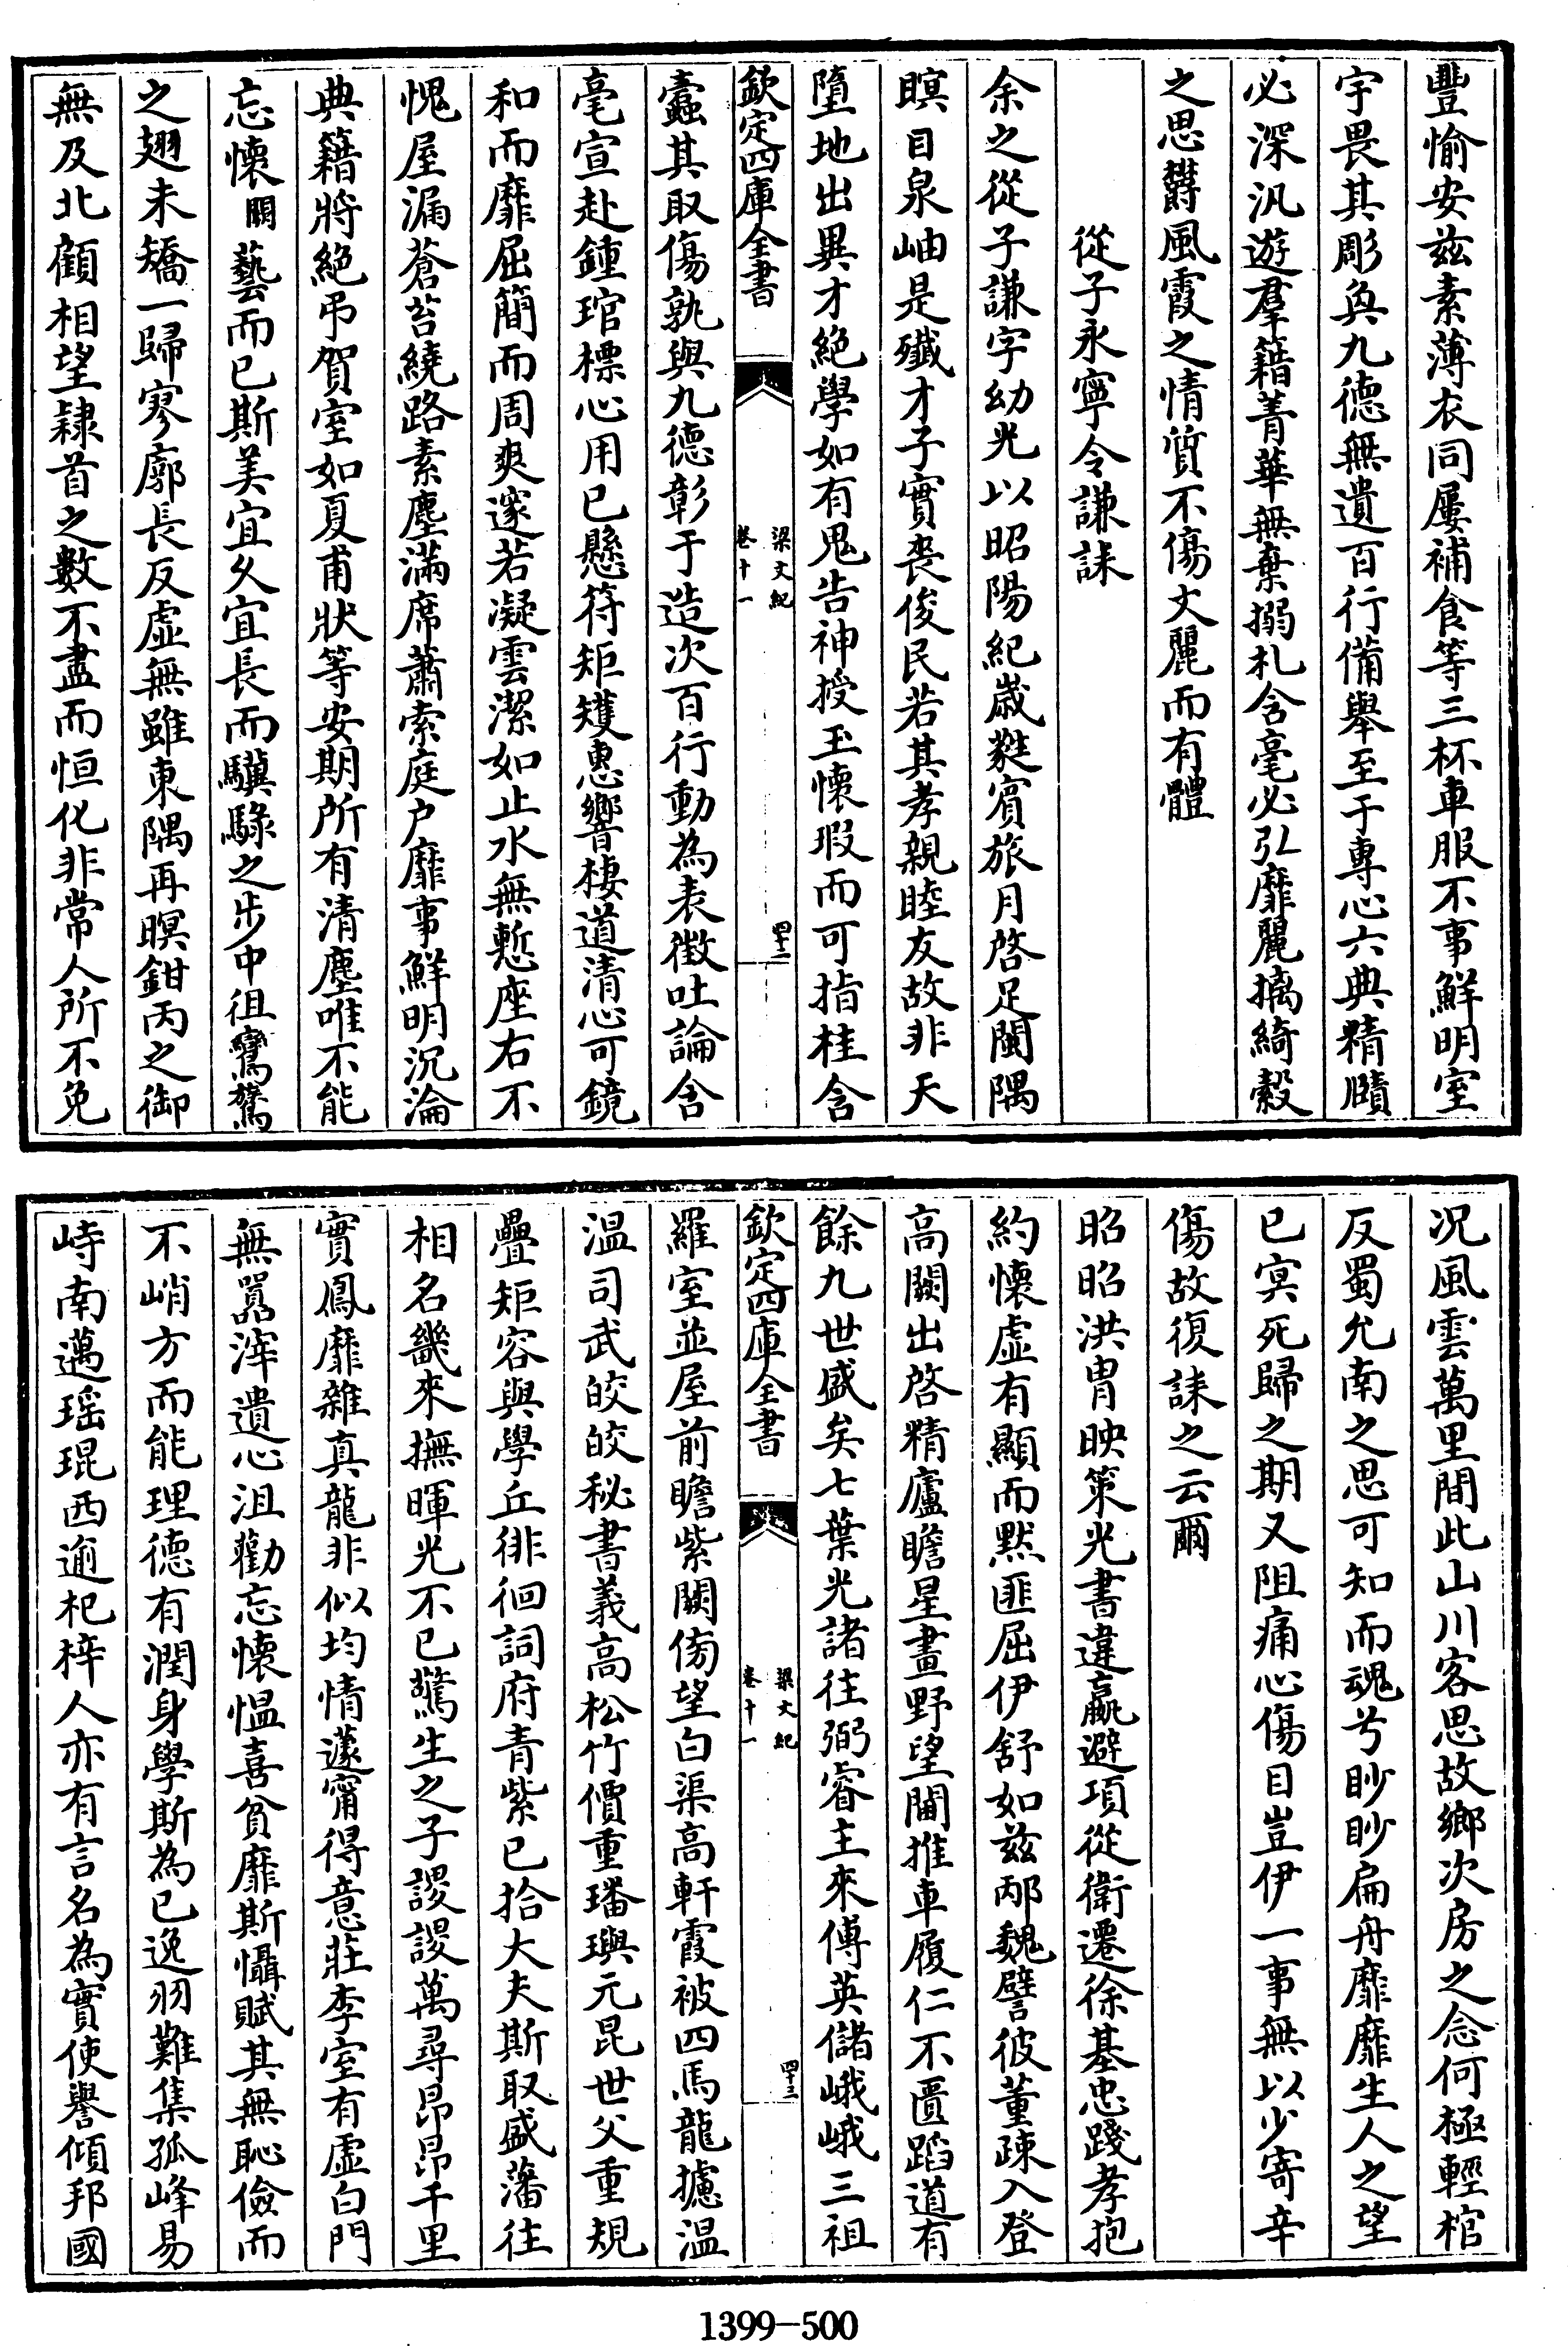 豐愉安兹素薄衣同屢補食等三杯車服不事鮮明室
宇畏其彫奐九德無遺百行備舉至于專心六典精賾
必深汎遊羣籍菁華無棄搦札含毫必弘靡麗摛綺縠
之思鬱風霞之情質不傷文麗而有體
從子永寧令謙誄
余之從子謙字幼光以昭陽紀歲蕤賓旅月啓足閩隅
瞑目泉岫是殲才子實喪俊民若其孝親睦友故非天
墮地出異才絕學如有鬼告神授玉懷瑕而可指桂含
欽定四庫全書
梁文紀
卷十一
四十二
蠹其取傷孰與九德彰于造次百行動為表徵吐論含
毫宣赴鍾琯標心用已懸符矩矱惠響棲道清心可鏡
和而靡屈簡而周爽邃若凝雲潔如止水無慙座右不
愧屋漏蒼苔繞路素塵滿席蕭索庭户靡事鮮明沉淪
典籍將絕弔賀室如夏甫狀等安期所有清塵唯不能
忘懷闕藝而已斯美宜久宜長而驥騄之步中徂鸞鶱
之翅未矯一歸寥廓長反虛無雖東隅再暝鉗丙之御
無及北顧相望隸首之數不盡而恒化非常人所不免
况風雲萬里間此山川客思故鄉次房之念何極輕棺
反蜀允南之思可知而魂兮眇眇扁舟靡靡生人之望
已冥死歸之期又阻痛心傷目豈伊一事無以少寄辛
傷故復誄之云爾
昭昭洪胄映策光書違嬴避項從衛遷徐基忠踐孝抱
約懷虛有顯而默匪屈伊舒如兹邴魏譬彼董疎入登
高闕出啓精廬瞻星畫野望閫推車履仁不匱蹈道有
餘九世盛矣七葉光諸往弼睿主來傅英儲峨峨三祖
欽定四庫全書
梁文紀
卷十一
四十三
羅室並屋前瞻紫闕傍望白渠高軒霞被四馬龍攄温
温司武皎皎秘書義高松竹價重璠璵元昆世父重規
疊矩容與學丘徘徊詞府青紫已拾大夫斯取盛藩往
相名畿來撫暉光不已驚生之子謖謖萬尋昂昂千里
實鳳靡雜真龍非似均情蘧甯得意莊李室有虛白門
無嚣滓遺心沮勸忘懷愠喜貧靡斯懾賦其無恥儉而
不峭方而能理德有潤身學斯為已逸羽難集孤峰易
峙南邁瑤琨西逾杞梓人亦有言名為實使譽傾邦國
1399-500